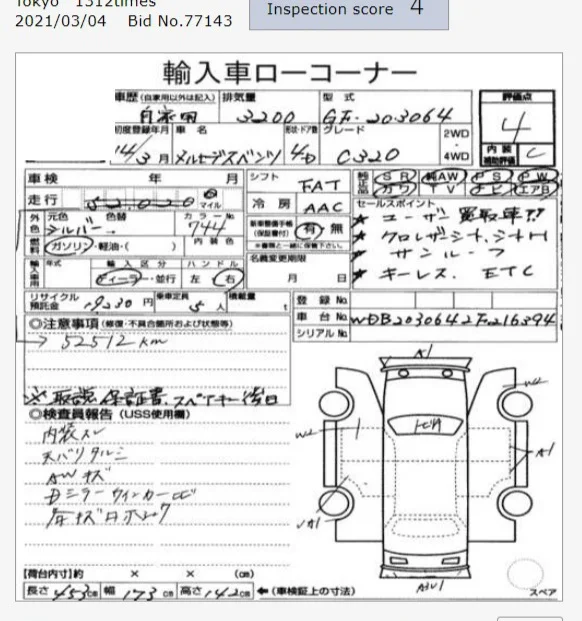 Tokyo 1312times
2021/03/04 Bid No.77143
Inspection score 4
輸入車ローコーナー
車歴 (自家用以外は記入) 排気量 型式 評価点
自家用 3200 GF-203064 4
初度登録年月 車名 形状・ドア数 グレード 2WD・4WD 内装補助評価
14/3月 メルセデスベンツ 4D C320 C
車検 年 月 シフト FAT 純正品 SR 純AW PS PW
走行 52,020 マイル 冷房 AAC カワ TV ナビ エアB
外色 元色 色替 カラーNo. 新車整備手帳(保証書付) 有・無 セールスポイント
シルバー 744 ※書類と一緒に保管下さい ★ ユーザー買取車!!
燃料 ガソリン・軽油・( ) 内装色 名義変更期限 ★ クロレザーシート、シートH
輸入車用 年式 輸入区分 ハンドル 月 日 ★ サンルーフ
ディーラー・並行 左 右 ★ キーレス ETC
リサイクル預託金 19230円 乗車定員 5人 積載量 t 登録No.
◎注意事項 (修復・不具合箇所および状態等) 車台No. WDB2030642F216394
シリアルNo.
→ 52512km
※取説 保証書、スペアキー後日
◎検査員報告 (USS使用欄)
内装スレ
天バリタルミ
AWキズ
A1
W2
W2
A1
A1
【荷台内寸】約 × × (cm)
長さ 453cm 幅 173cm 高さ 142cm ←(車検証上の寸法) スペア